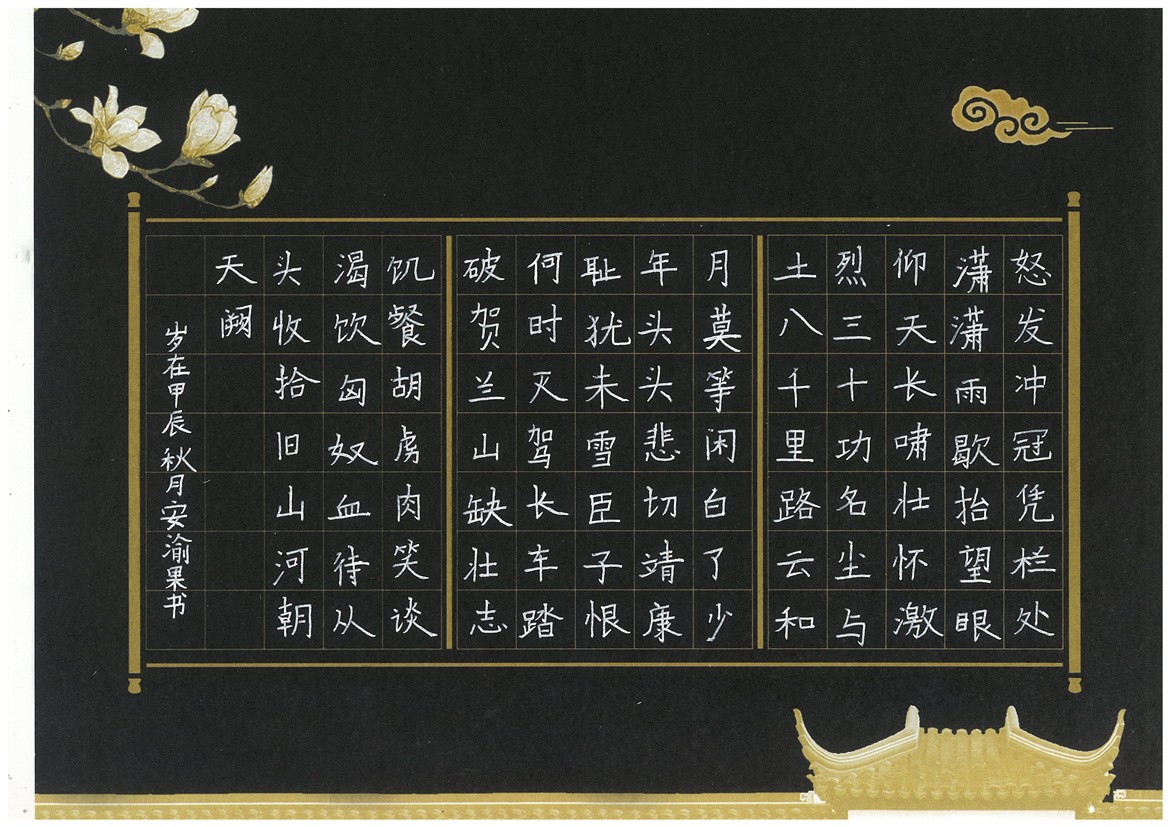 怒发冲冠凭栏处
潇潇雨歇抬望眼
仰天长啸壮怀激
烈三十功名尘与
土八千里路云和
月莫等闲白了少
年头头悲切靖康
耻犹未雪臣子恨
何时灭驾长车踏
破贺兰山缺壮志
饥餐胡虏肉笑谈
渴饮匈奴血待从
头收拾旧山河朝
天阙
岁在甲辰秋月安渝果书